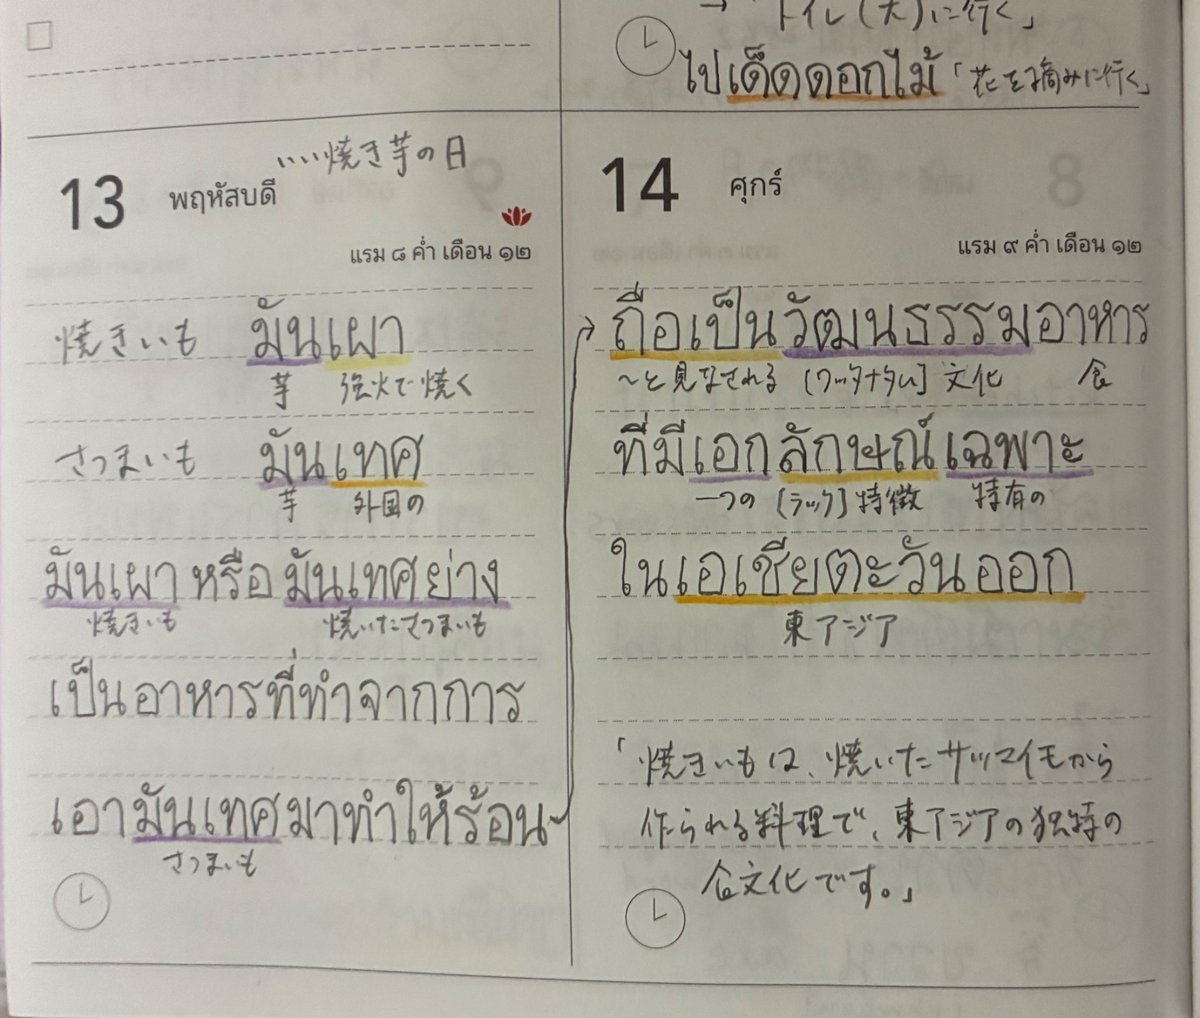 → 「トイレ(大)に行く」
ไปเด็ดดอกไม้ 「花を摘みに行く」
いい焼き芋の日
13 พฤหัสบดี
แรม ๘ ค่ำ เดือน ๑๒
焼きいも มันเผา
芋 強火で焼く
さつまいも มันเทศ
芋 外国の
มันเผา หรือ มันเทศย่าง
焼きいも 焼いたさつまいも
เป็นอาหารที่ทำจากการ
เอามันเทศมาทำให้ร้อน
さつまいも
14 ศุกร์
แรม ๙ ค่ำ เดือน ๑๒
→ ถือเป็นวัฒนธรรมอาหาร
〜と見なされる [ワッタナタム] 文化 食
ที่มีเอกลักษณ์เฉพาะ
一つの [ラック] 特徴 特有の
ในเอเชียตะวันออก
東アジア
「焼きいもは、焼いたサツマイモから
作られる料理で、東アジアの独特の
食文化です。」